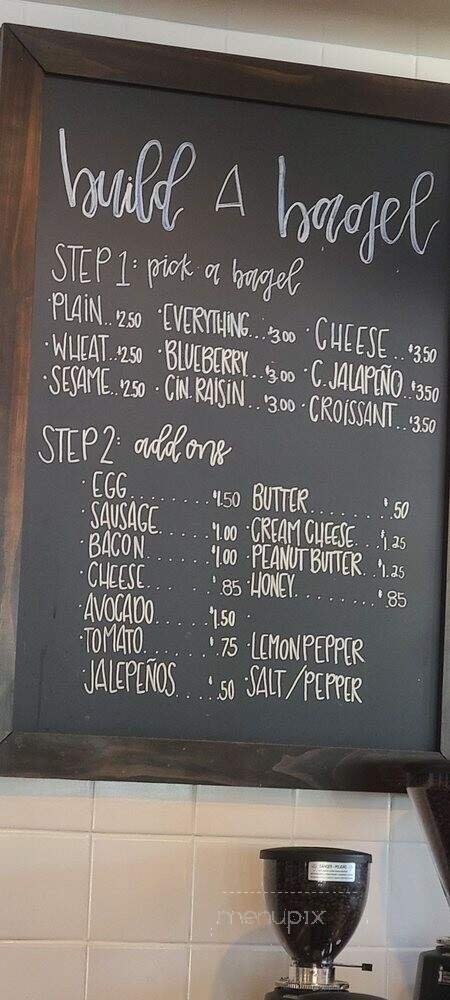 build A bagel
STEP 1: pick a bagel
· PLAIN.. $2.50 · EVERYTHING... $3.00 · CHEESE.. $3.50
· WHEAT.. $2.50 · BLUEBERRY... $3.00 · C. JALAPEÑO.. $3.50
· SESAME.. $2.50 · CIN. RAISIN... $3.00 · CROISSANT.. $3.50
STEP 2: add ons
· EGG........ $1.50 BUTTER........ $.50
· SAUSAGE...... $1.00 · CREAM CHEESE... $1.25
· BACON....... $1.00 · PEANUT BUTTER.. $1.25
· CHEESE....... .85 · HONEY........ $.85
· AVOCADO...... $1.50
· TOMATO...... $.75 · LEMON PEPPER
· JALEPEÑOS.... $.50 · SALT/PEPPER
DANGER - PELIGRO
menupix